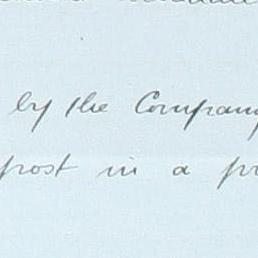 by the Company
post in a